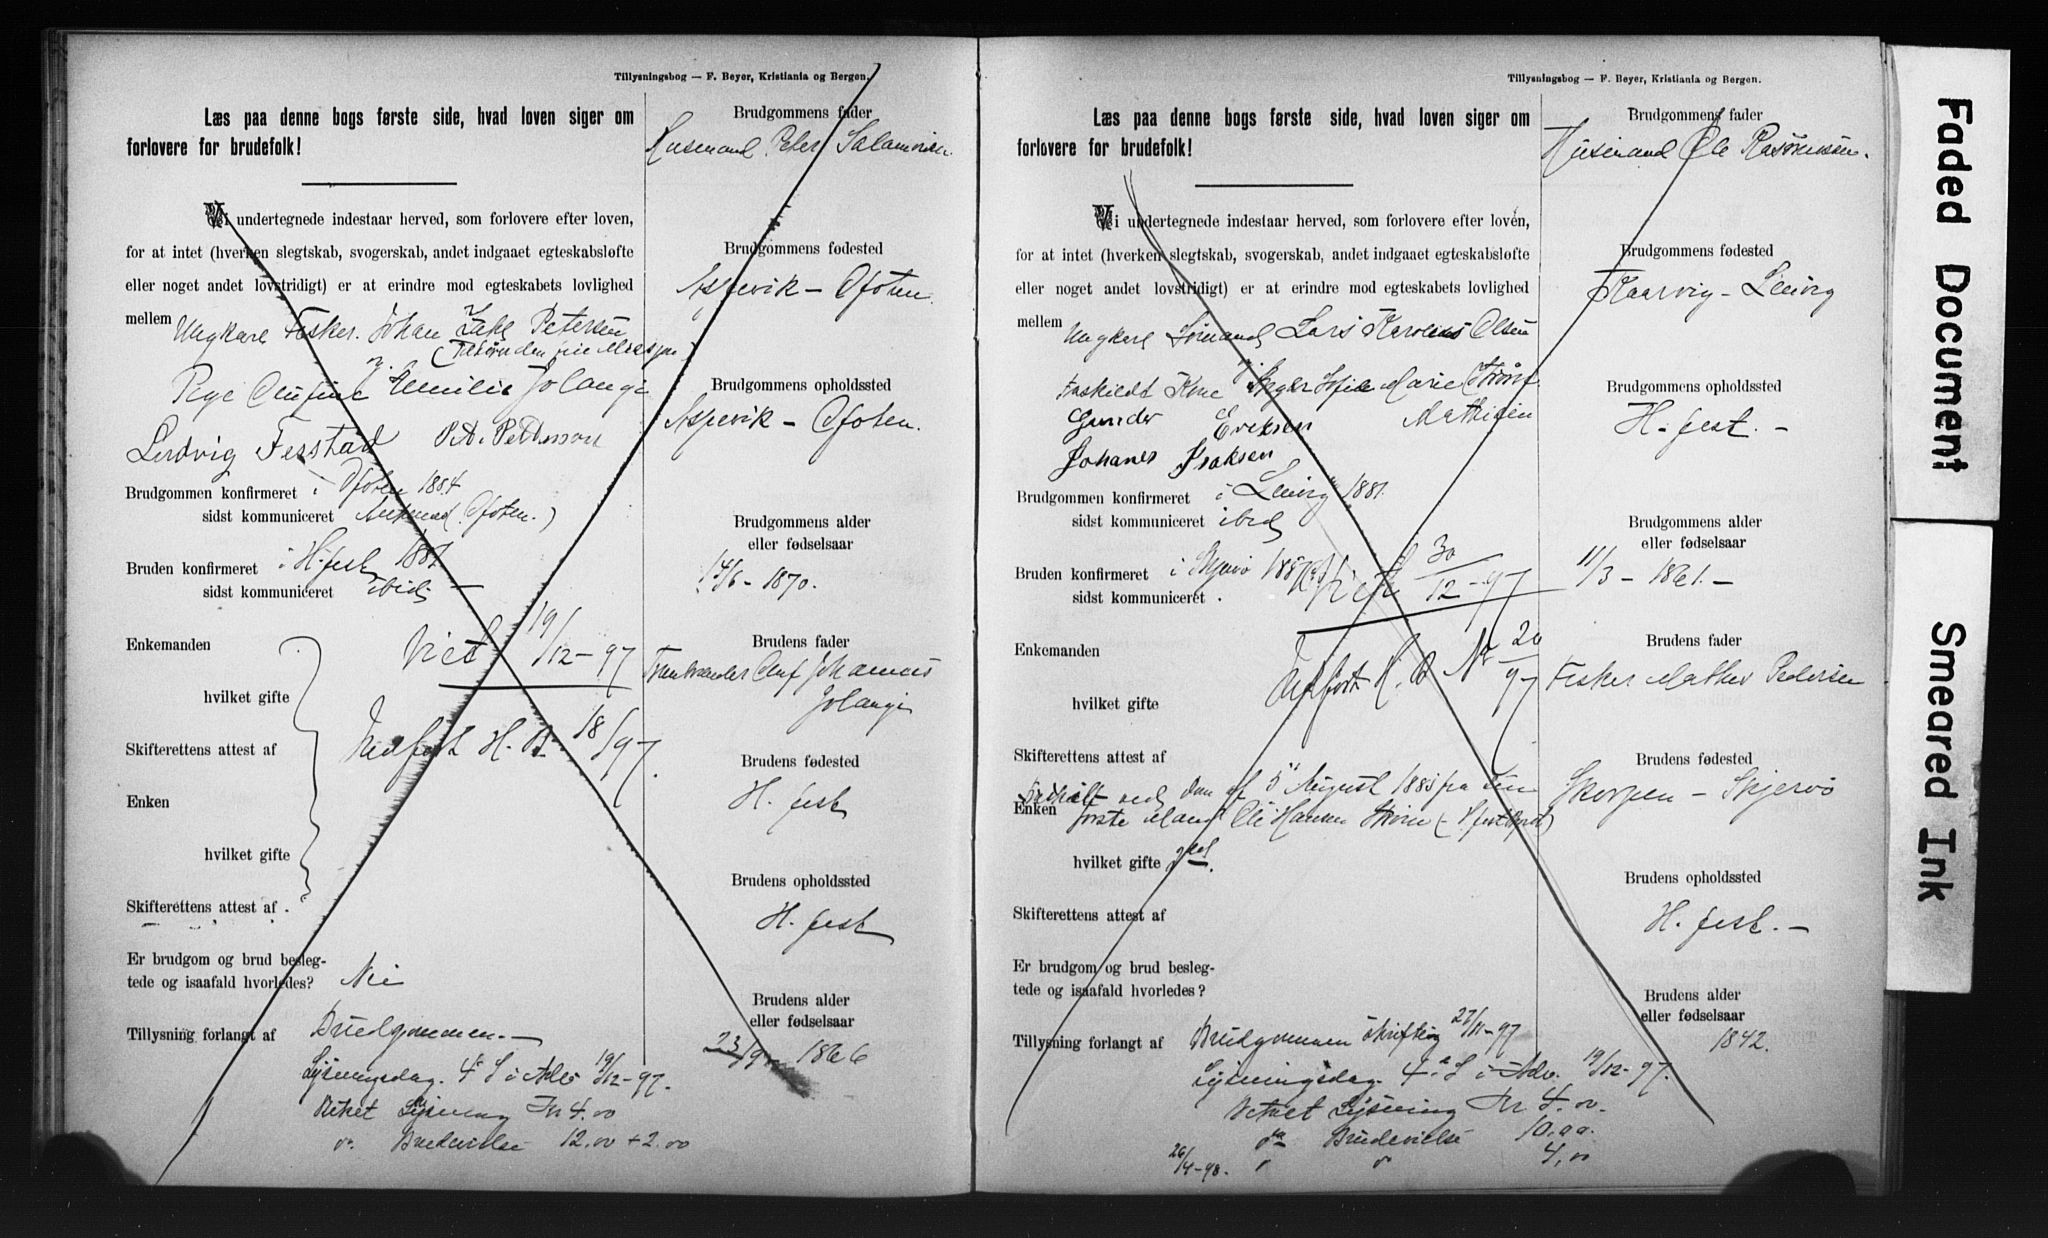 Tillysningsbog — F. Beyer, Kristiania og Bergen.
Læs paa denne bogs første side, hvad loven siger om
forlovere for brudefolk!
Vi undertegnede indestaar herved, som forlovere efter loven,
for at intet (hverken slegtskab, svogerskab, andet indgaaet egteskabsløfte
eller noget andet lovstridigt) er at erindre mod egteskabets lovlighed
mellem
Ungkarl Fisker Johan Petersen
Pige Olufine Emilie Jolange
Ludvig Fesstad P. A. Pettersson
Brudgommen konfirmeret i Ofoten 1884
sidst kommuniceret Ankenes (Ofoten.)
Bruden konfirmeret i H.fest 1881
sidst kommuniceret ibid.
Enkemanden
viet 19/12-97
hvilket gifte
Indført H. B. 18/97.
Skifterettens attest af
Enken
hvilket gifte
Skifterettens attest af
Er brudgom og brud besleg-
tede og isaafald hvorledes? Nei
Tillysning forlangt af Brudgommen.
Lysningsdag. 4de S i Adv 19/12-97.
Betalt Lysning Kr 4.00
do. Brudevielse 12.00 + 2.00
Brudgommens fader
Husmand Peter Salamonsen
Brudgommens fødested
Aspevik - Ofoten.
Brudgommens opholdssted
Aspevik - Ofoten.
Brudgommens alder
eller fødselsaar
14/6 - 1870.
Brudens fader
Oluf Johannes
Jolange
Brudens fødested
H. fest
Brudens opholdssted
H. fest
Brudens alder
eller fødselsaar
23/9 1866
Tillysningsbog — F. Beyer, Kristiania og Bergen.
Læs paa denne bogs første side, hvad loven siger om
forlovere for brudefolk!
Vi undertegnede indestaar herved, som forlovere efter loven,
for at intet (hverken slegtskab, svogerskab, andet indgaaet egteskabsløfte
eller noget andet lovstridigt) er at erindre mod egteskabets lovlighed
mellem
Ungkarl Sømand Lars Karolius Olsen
Fraskildt Kone Marie Strøm
Mathisen
Gunder Eriksen
Johanes Isaksen
Brudgommen konfirmeret i Lenvig 1881.
sidst kommuniceret ibid
Bruden konfirmeret i Skjervø
sidst kommuniceret.
Viet 30/12-97
Enkemanden
Indført H. B. No 20/97
hvilket gifte
Skifterettens attest af
ved Dom af 5te August 1885 fra sin
Enken
første Mand Ole Hansen Strøm
hvilket gifte 2det.
Skifterettens attest af
Er brudgom og brud besleg-
tede og isaafald hvorledes?
Tillysning forlangt af Brudgommen skriftlig 27/11-97
Lysningsdag. 4de S i Adv. 19/12-97.
Betalt Lysning Kr 4.00.
do Brudevielse 10.00.
26/4-98. " " 4,00
Brudgommens fader
Husmand Ole Rasmussen.
Brudgommens fødested
Kaarvig - Lenvig
Brudgommens opholdssted
H. fest. -
Brudgommens alder
eller fødselsaar
11/3 - 1861. -
Brudens fader
Fisker Mathis Pedersen
Brudens fødested
Skorpen - Skjervø
Brudens opholdssted
H. fest. -
Brudens alder
eller fødselsaar
1842.
Faded Document
Smeared Ink